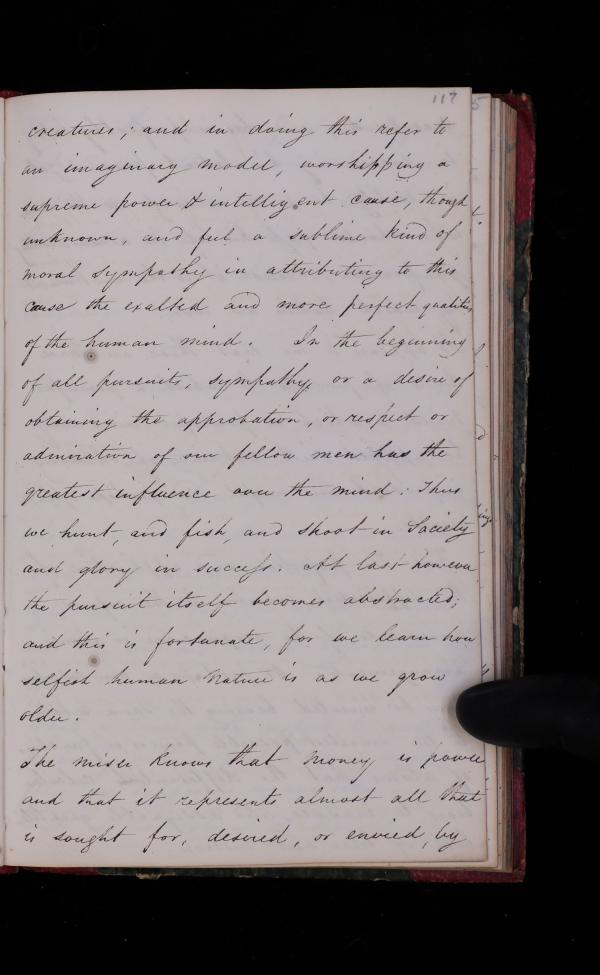 117
creatures; and in doing this refer to
an imaginary model, worshipping a
supreme power & intelligent cause, though
unknown, and feel a sublime kind of
moral sympathy in attributing to this
cause the exalted and more perfect qualities
of the human mind. In the beginning
of all pursuits, sympathy, or a desire of
obtaining the approbation, or respect or
admiration of our fellow men has the
greatest influence over the mind: Thus
we hunt, and fish, and shoot in Society
and glory in success. At last however
the pursuit itself becomes abstracted;
and this is fortunate, for we learn how
selfish human Nature is as we grow
older.
The miser knows that money is power
and that it represents almost all that
is sought for, desired, or envied, by